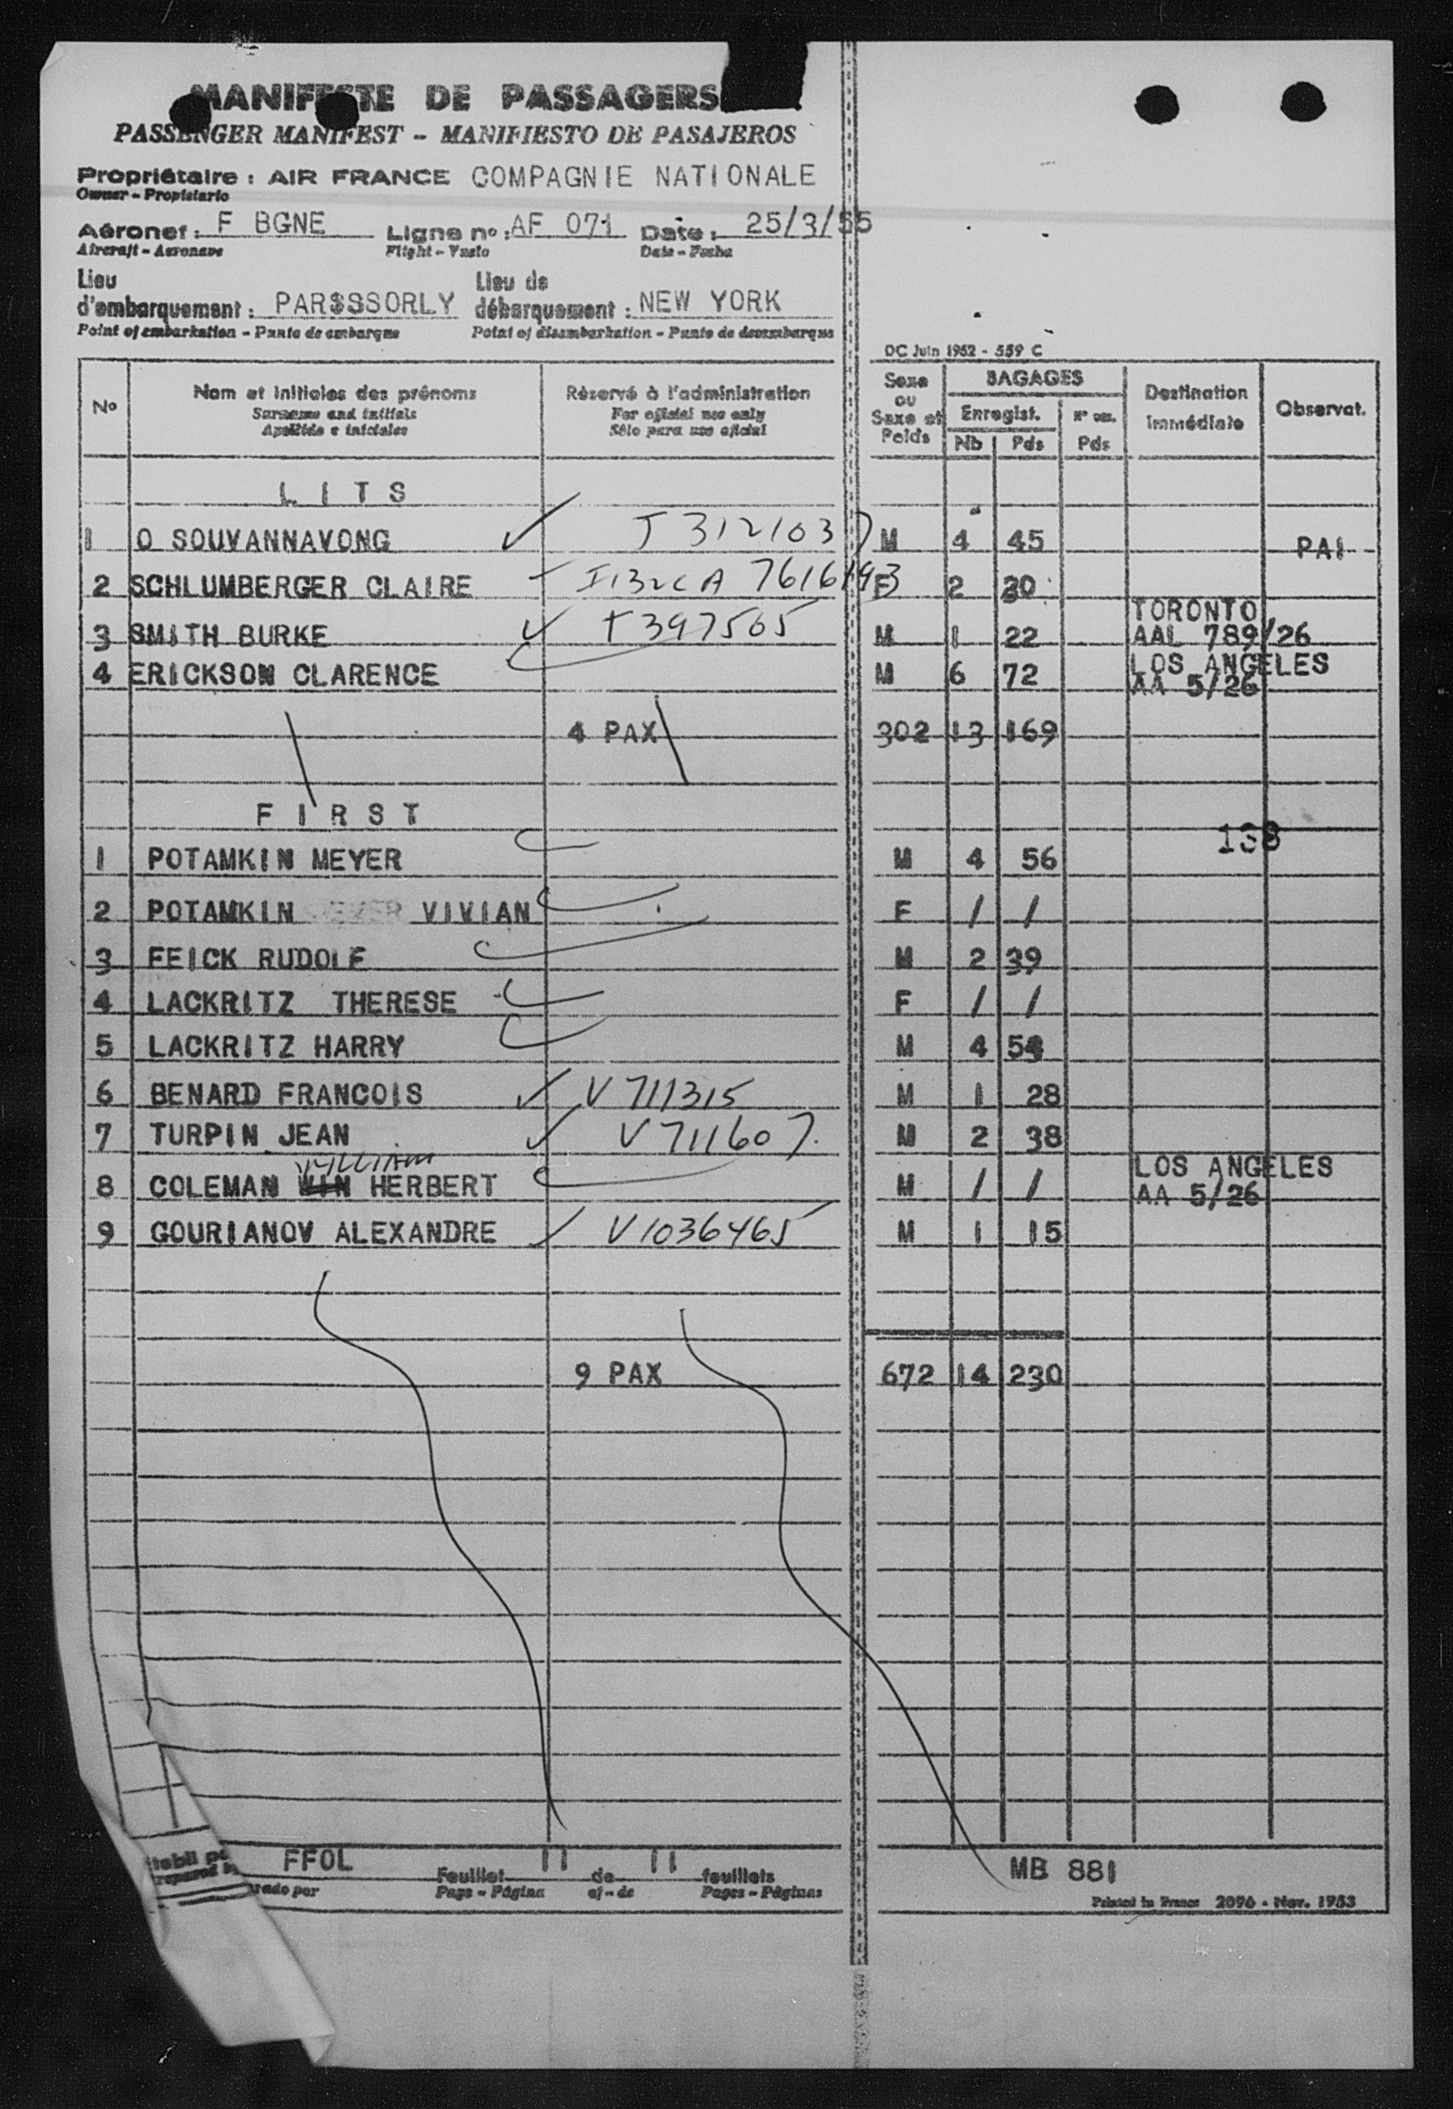 MANIFESTE DE PASSAGERS
PASSENGER MANIFEST - MANIFIESTO DE PASAJEROS
Propriétaire : AIR FRANCE COMPAGNIE NATIONALE
Owner - Propietario
Aéronef : F BGNE Ligne nº : AF 071 Date : 25/3/55
Aircraft - Aeronave Flight - Vuelo Date - Fecha
Lieu d'embarquement : PAR$SSORLY Lieu de débarquement : NEW YORK
Point of embarkation - Punto de embarque Point of disembarkation - Punto de desembarque
DC Juin 1952 - 559 C
Nº Nom et initiales des prénoms Réservé à l'administration Sexe ou Sexe et Poids BAGAGES Destination immédiate Observat.
Surname and initials For official use only Enregist.
Apellido e iniciales Sólo para uso oficial Nb Pds Pds
LITS
1 O SOUVANNAVONG T 3121037 M 4 45 PAI
2 SCHLUMBERGER CLAIRE I132CA 7616193 F 2 30
TORONTO
3 SMITH BURKE T 397565 M 1 22 AAL 789/26
LOS ANGELES
4 ERICKSON CLARENCE M 6 72 AA 5/26
4 PAX 302 13 169
FIRST
138
1 POTAMKIN MEYER M 4 56
2 POTAMKIN VIVIAN F / /
3 FEICK RUDOLF M 2 39
4 LACKRITZ THERESE F / /
5 LACKRITZ HARRY M 4 54
6 BENARD FRANCOIS V 711315 M 1 28
7 TURPIN JEAN V 711607. M 2 38
WILLIAM LOS ANGELES
8 COLEMAN WIN HERBERT M / / AA 5/26
9 GOURIANOV ALEXANDRE V1036465 M 1 15
9 PAX 672 14 230
FFOL Feuillet 11 de 11 feuillets MB 881
Page - Página of - de Pages - Páginas
Printed in France 2096 - Nov. 1953